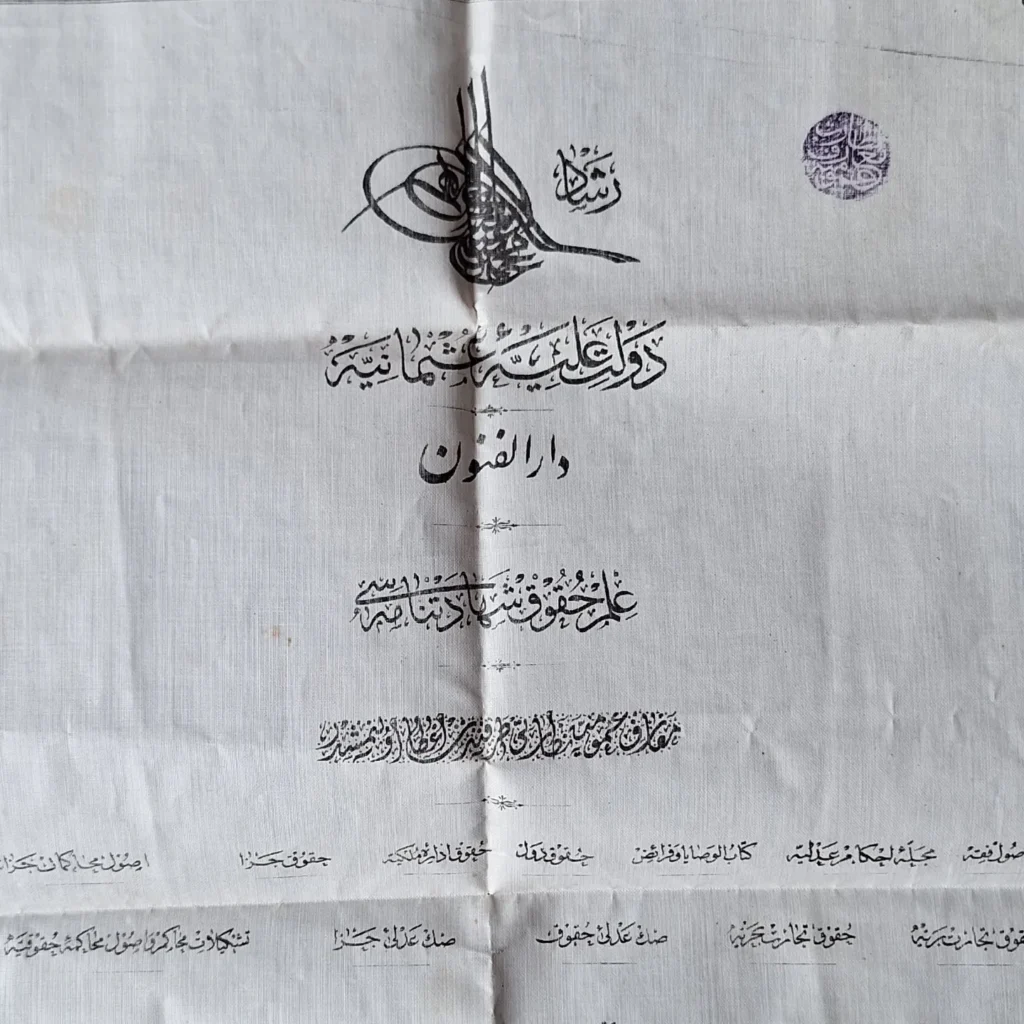 رشاد
دولت عليۀ عثمانيه
دار الفنون
علم حقوق شهادتنامه سی
معارف عموميه نظارتی طرفندن اعطا اولنمشدر
اصول فقه مجلۀ احكام عدليه كتاب الوصايا و فرائض حقوق دول حقوق ادارۀ ملكيه حقوق جزا اصول محاكمات جزا
حقوق تجارت بريه حقوق تجارت بحريه صك عدلئ حقوق صك عدلئ جزا تشكيلات محاكم و اصول محاكمۀ حقوقيه